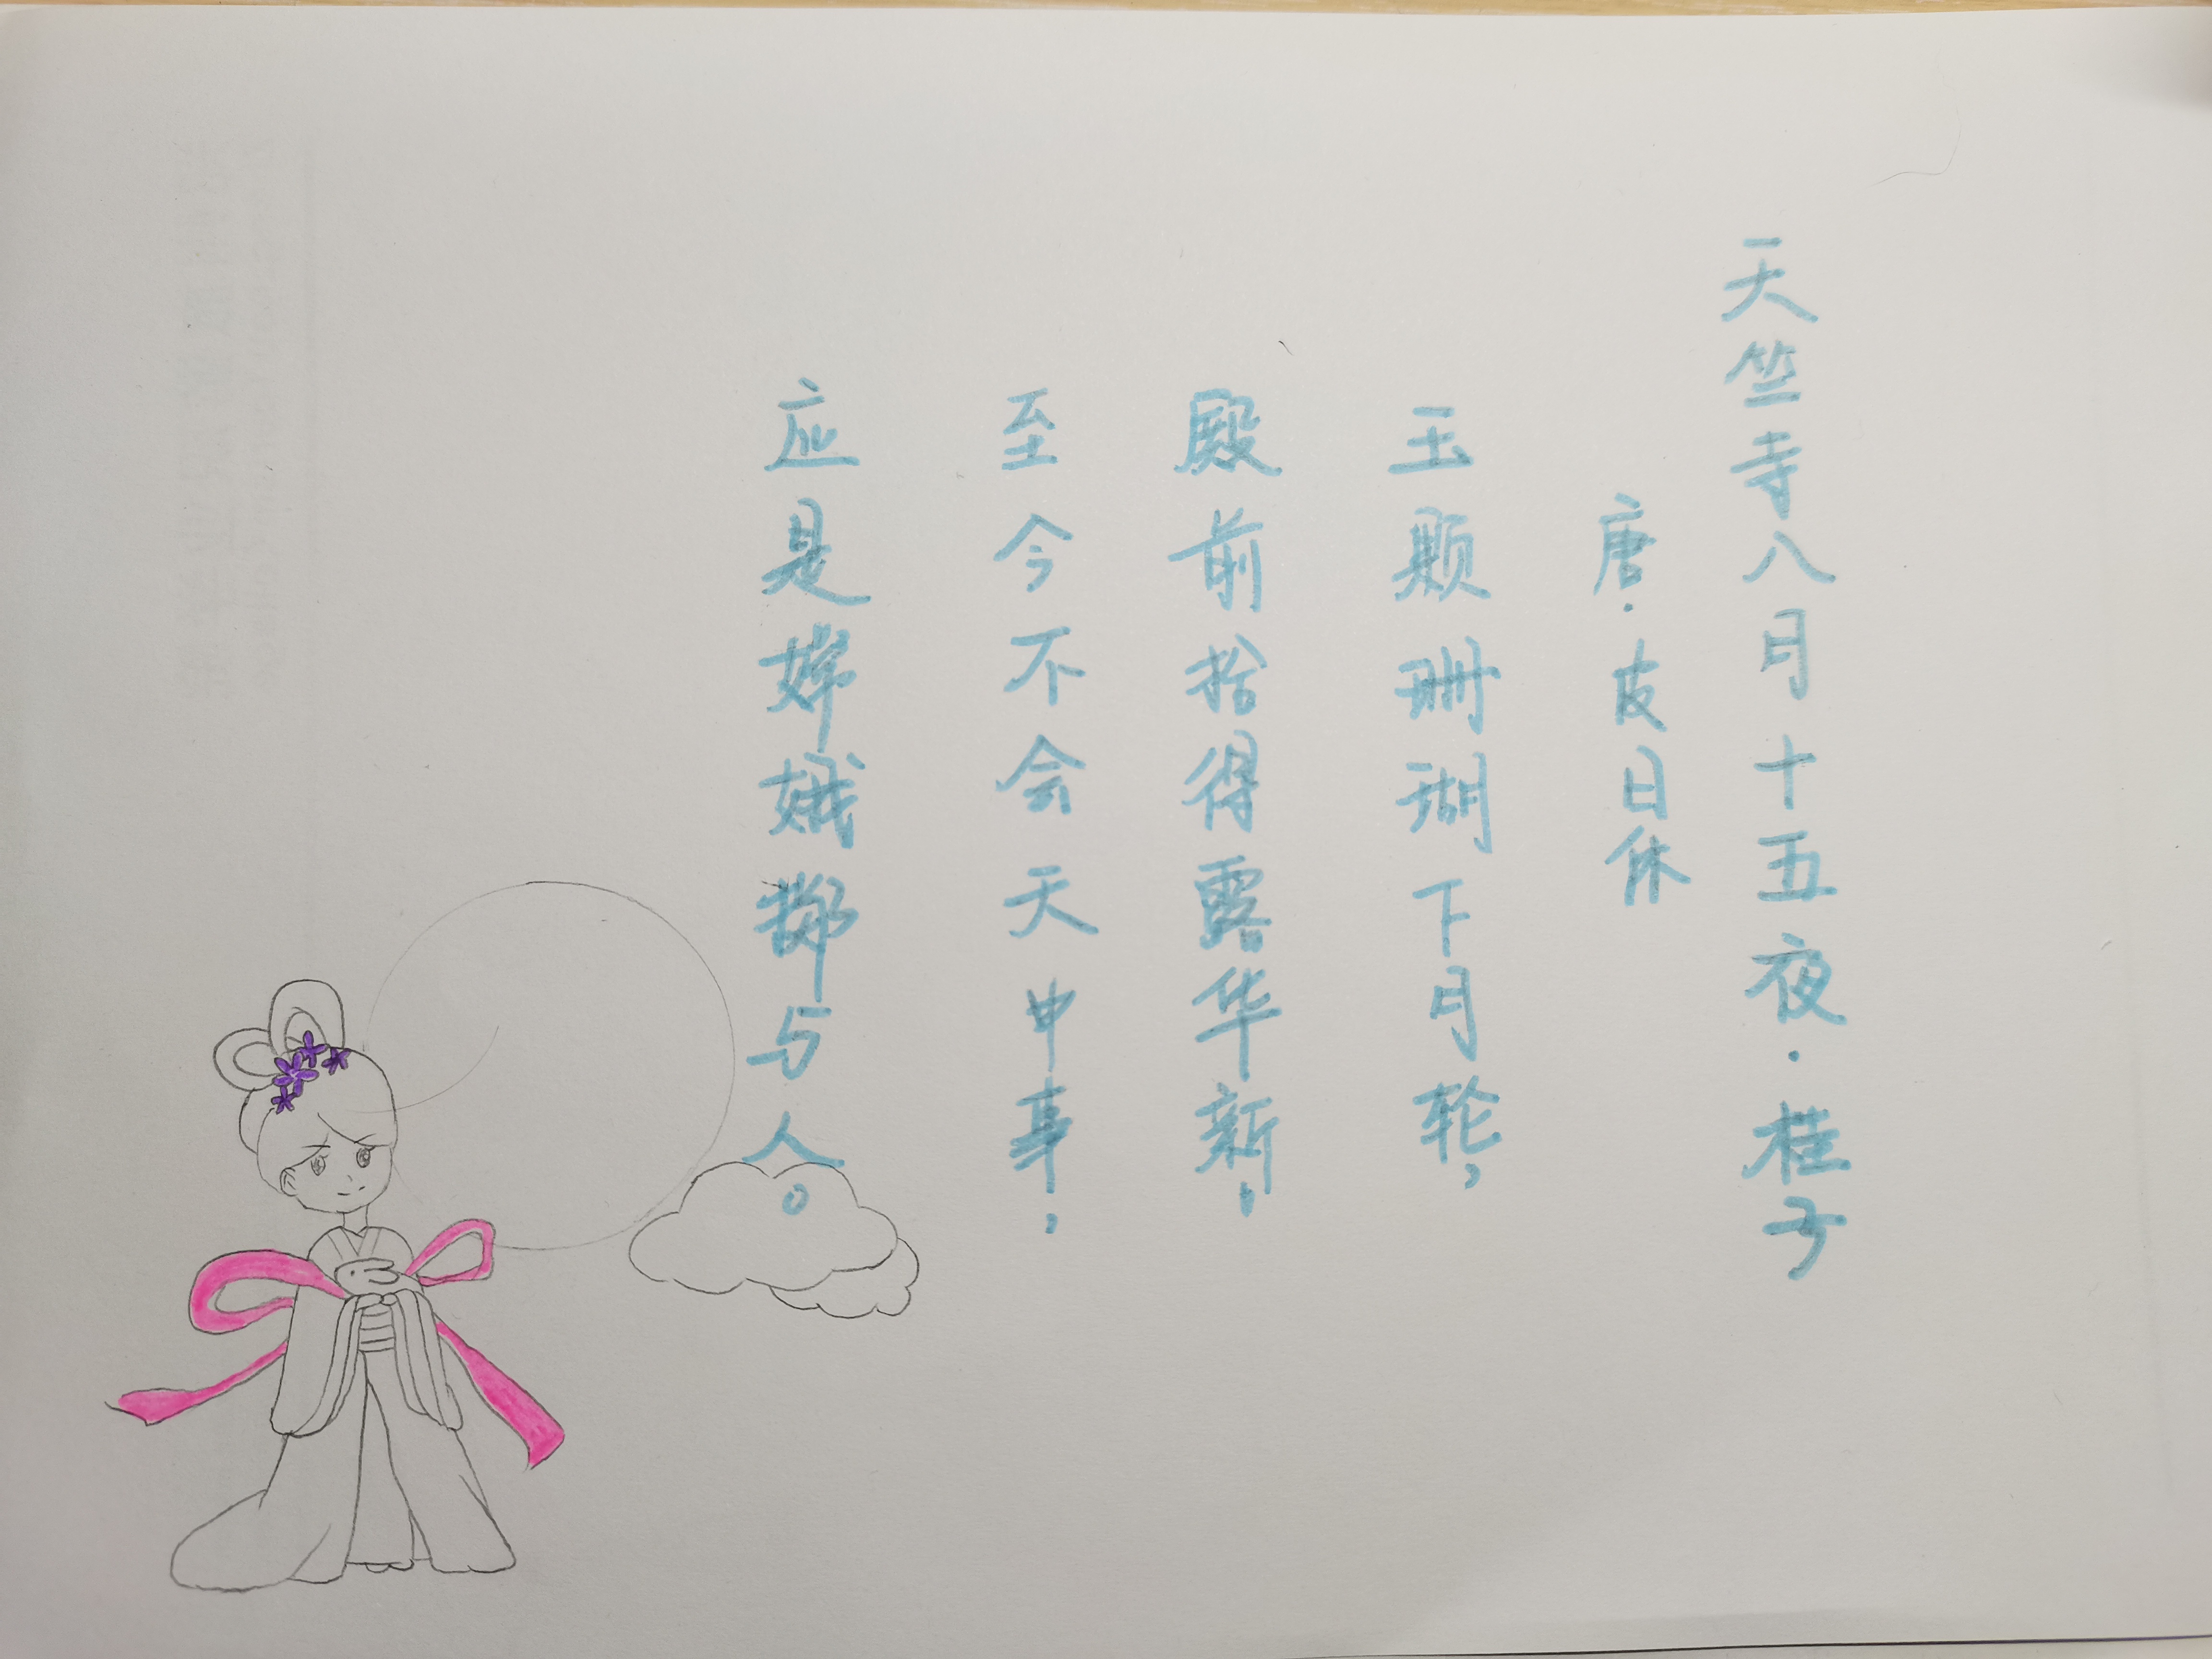 天竺寺八月十五夜·桂子
唐·皮日休
玉颗珊瑚下月轮，
殿前拾得露华新，
至今不会天中事，
应是嫦娥掷与人。